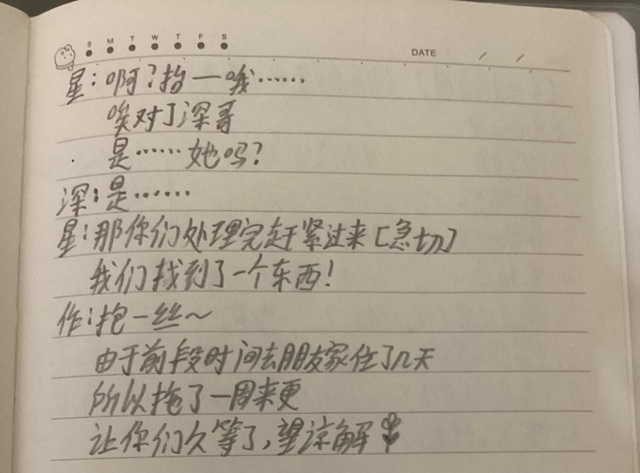 S M T W T F S
DATE / /
星:啊?抬一哦……
唉对了深哥
是……她吗?
深:是……
星:那你们处理完赶紧过来[急切]
我们找到了一个东西!
作:抱一丝~
由于前段时间去朋友家住了几天
所以拖了一周来更
让你们久等了,望谅解